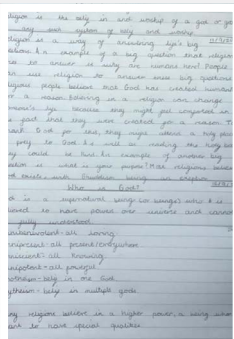 religion is the bely in and worship of a god or go
any such system of bely and worship
eligion as a way of answering life's big
estions. An example of a big question that religion
to answer is why are humans here? People
use religion to answer these big questions
ligious people believe that God has created humans
a reason. Believing in a religion can change
someone's life because they might feel
the fact that they were created for a reason. Th
God for this, they might attend a holy place
pray to God as well as reading the holy book
could be. Another example of another big
question is what is our purpose? Most religions believe
God exists, with Buddhism being an exception.
Who is God?
d is a supernatural being (or beings) who is
lieved to have power over universe and cannot
fully understood
mnibenevolent - all loving
mnipresent - all present/everywhere
mniscient - all knowing
mnipotent - all powerful
notheism - bely in one God
lytheism - bely in multiple gods
ny religions believe in a higher power, a being whom
ant to have special qualities